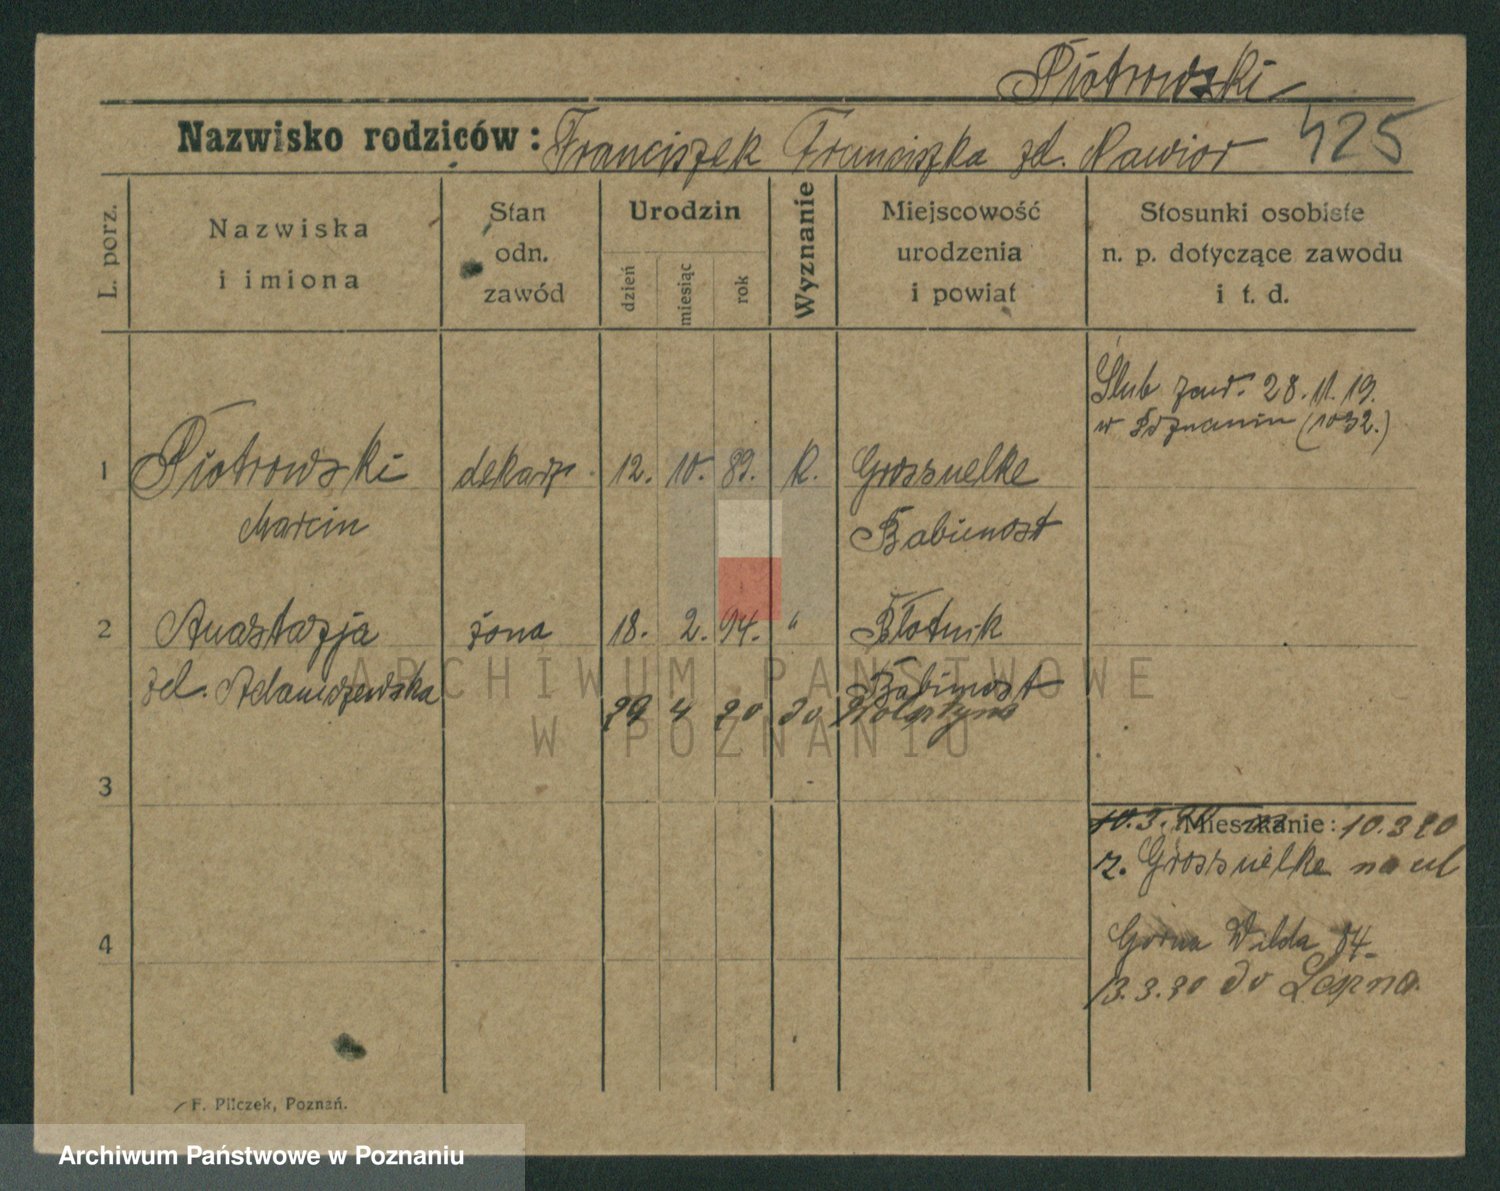 Piotrowski
Nazwisko rodziców: Franciszek Franciszka zd. Nawior 425
L. porz.
Nazwiska
i imiona
Stan
odn.
zawód
Urodzin
dzień
miesiąc
rok
Wyznanie
Miejscowość
urodzenia
i powiat
Stosunki osobiste
n. p. dotyczące zawodu
i t. d.
Ślub zaw. 28.11.19.
w Poznaniu (1032.)
1 Piotrowski dekarz. 12. 10. 89. K. Grossnelke
Marcin Babimost
2 Anastazja żona 18. 2. 94. " Błotnik
zd. Adamczewska Babimost
29 4 20 do Wolsztyna
3
Mieszkanie: 10.3 20
z. Grossnelke na ul
4 Górna Wilda 84
13.3.30 do Leszna
F. Pilczek, Poznań.
ARCHIWUM PAŃSTWOWE
W POZNANIU
Archiwum Państwowe w Poznaniu